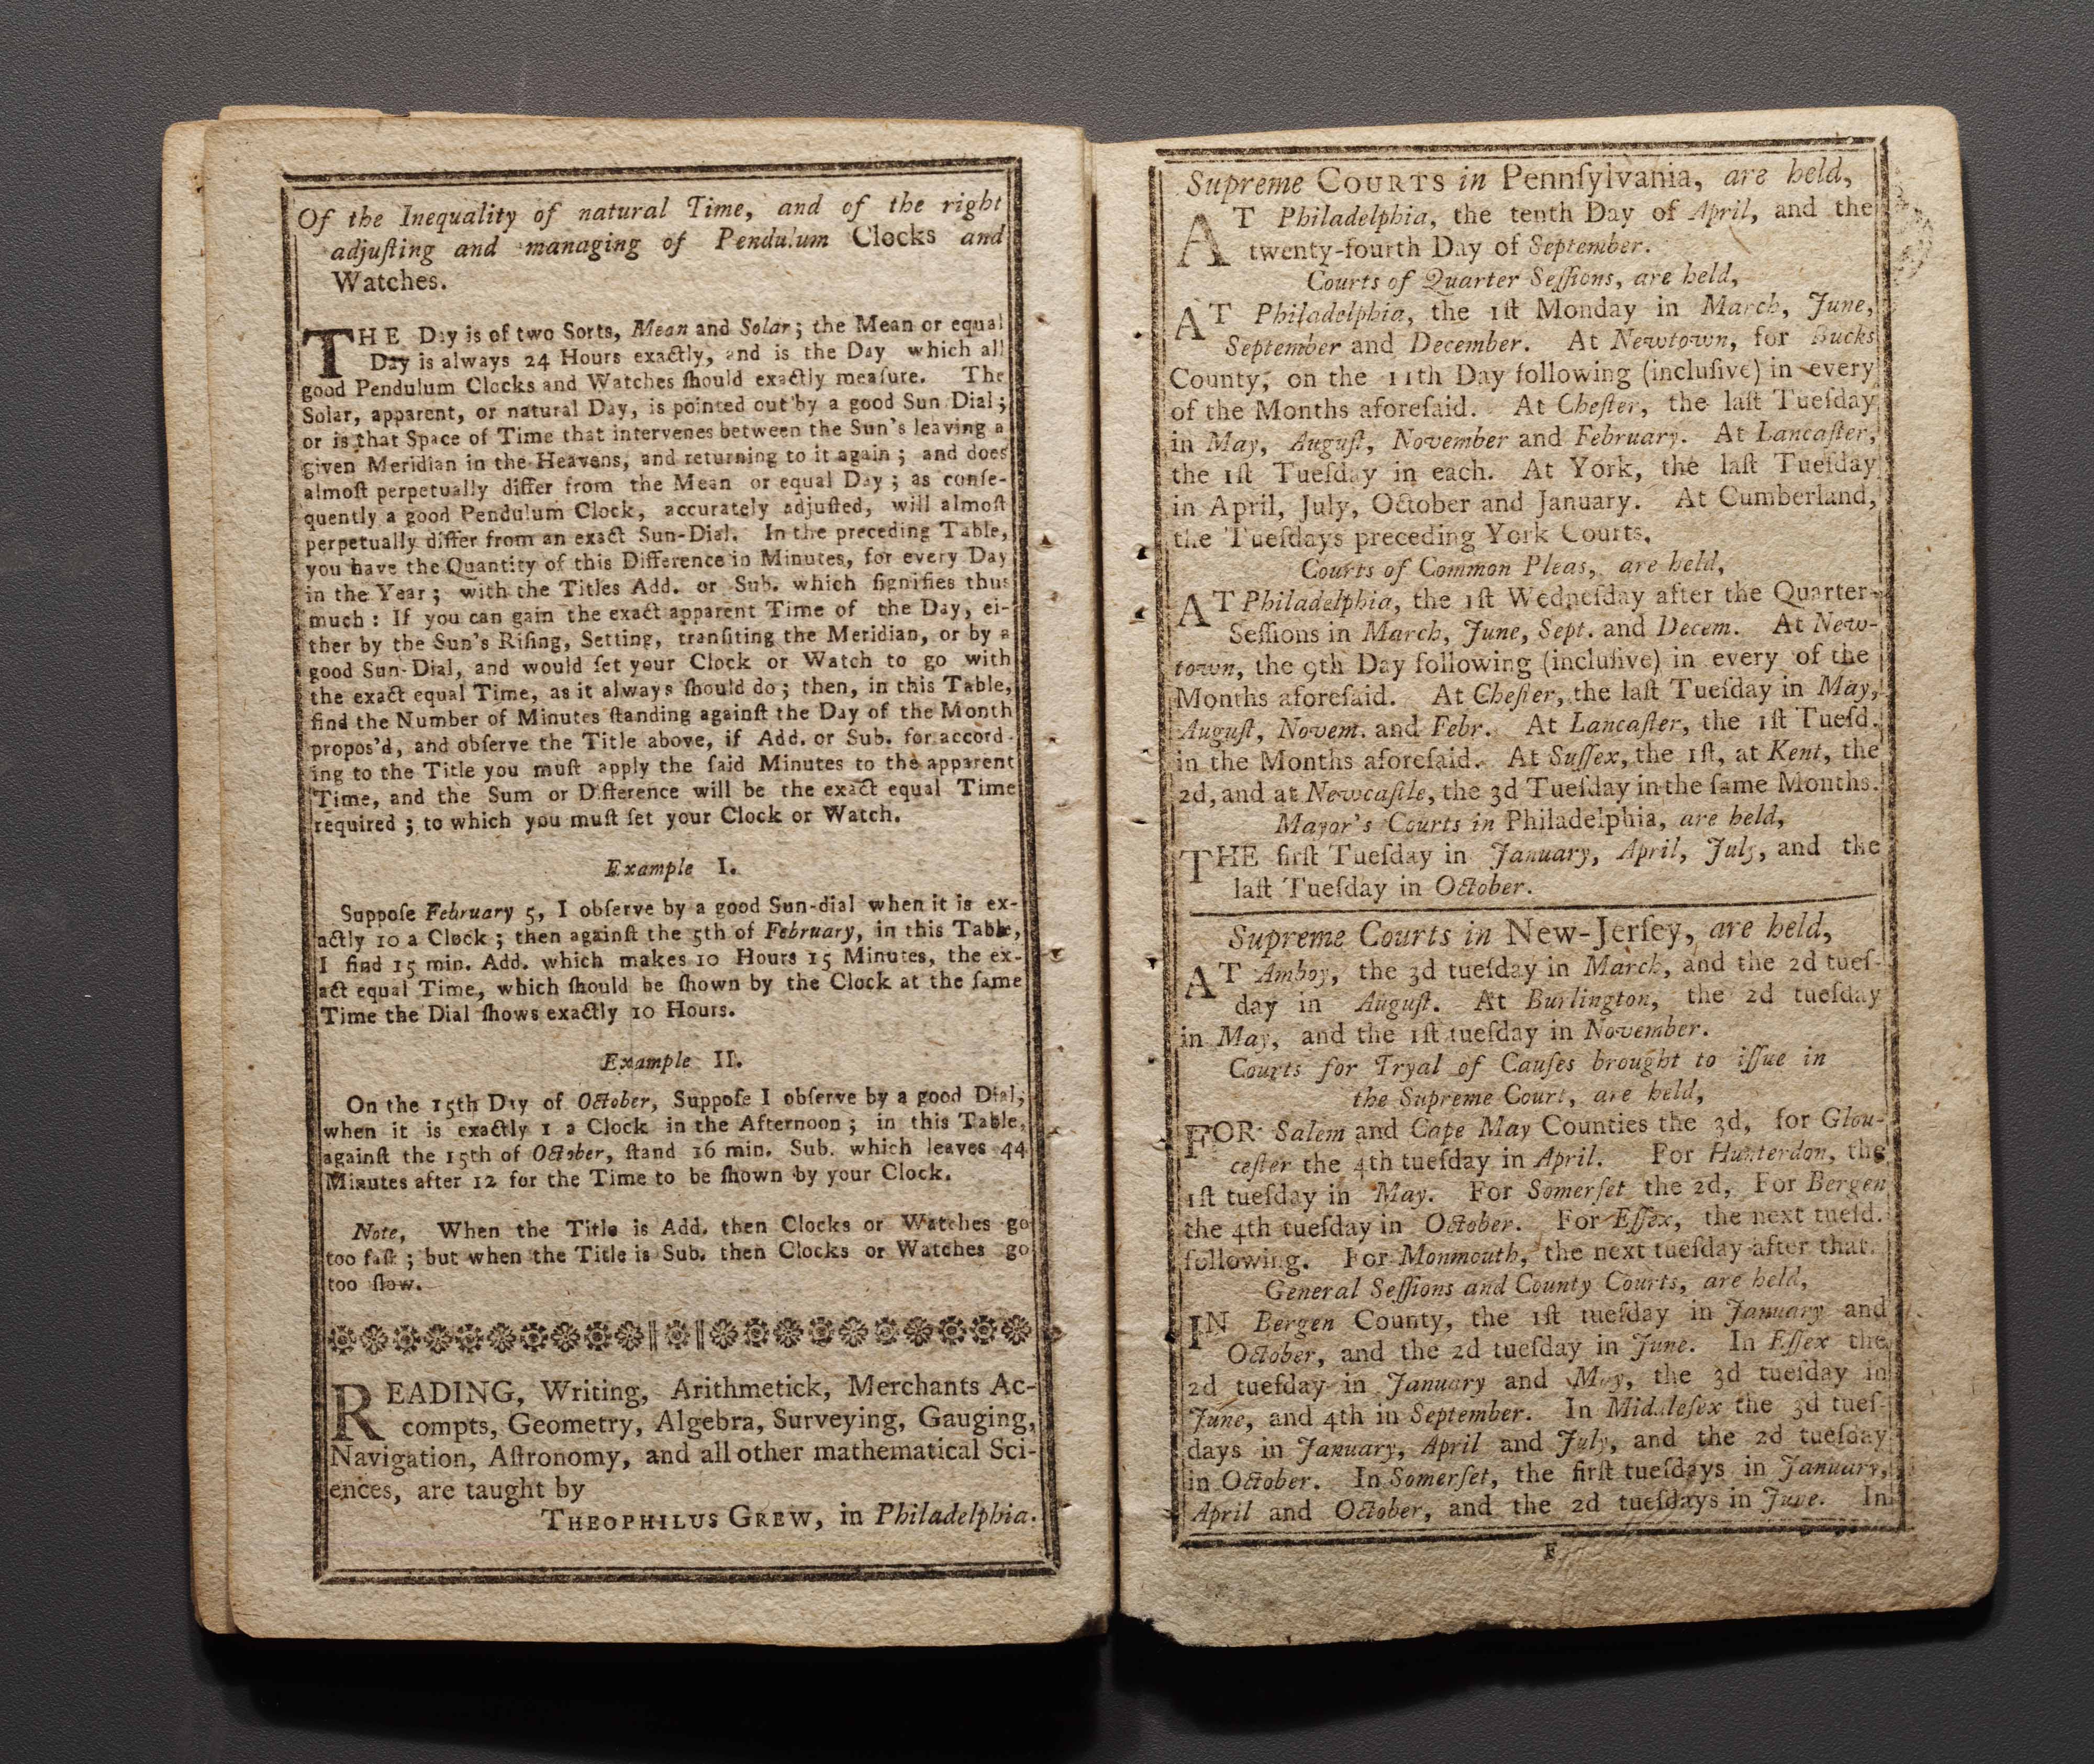 Of the Inequality of natural Time, and of the right
adjuſting and managing of Pendulum Clocks and
Watches.
THE Day is of two Sorts, Mean and Solar; the Mean or equal
Day is always 24 Hours exactly, and is the Day which all
good Pendulum Clocks and Watches ſhould exactly meaſure. The
Solar, apparent, or natural Day, is pointed out by a good Sun Dial;
or is that Space of Time that intervenes between the Sun's leaving a
given Meridian in the Heavens, and returning to it again; and does
almoſt perpetually differ from the Mean or equal Day; as conſe-
quently a good Pendulum Clock, accurately adjuſted, will almoſt
perpetually differ from an exact Sun-Dial. In the preceding Table,
you have the Quantity of this Difference in Minutes, for every Day
in the Year; with the Titles Add. or Sub. which ſignifies thus
much: If you can gain the exact apparent Time of the Day, ei-
ther by the Sun's Riſing, Setting, tranſiting the Meridian, or by a
good Sun-Dial, and would ſet your Clock or Watch to go with
the exact equal Time, as it always ſhould do; then, in this Table,
find the Number of Minutes ſtanding againſt the Day of the Month
propos'd, and obſerve the Title above, if Add. or Sub. for accord-
ing to the Title you muſt apply the ſaid Minutes to the apparent
Time, and the Sum or Difference will be the exact equal Time
required; to which you muſt ſet your Clock or Watch.
Example I.
Suppoſe February 5, I obſerve by a good Sun-dial when it is ex-
actly 10 a Clock; then againſt the 5th of February, in this Table,
I find 15 min. Add. which makes 10 Hours 15 Minutes, the ex-
act equal Time, which ſhould be ſhown by the Clock at the ſame
Time the Dial ſhows exactly 10 Hours.
Example II.
On the 15th Day of October, Suppoſe I obſerve by a good Dial,
when it is exactly 1 a Clock in the Afternoon; in this Table,
againſt the 15th of October, ſtand 16 min. Sub. which leaves 44
Minutes after 12 for the Time to be ſhown by your Clock.
Note, When the Title is Add. then Clocks or Watches go
too faſt; but when the Title is Sub. then Clocks or Watches go
too ſlow.
READING, Writing, Arithmetick, Merchants Ac-
compts, Geometry, Algebra, Surveying, Gauging,
Navigation, Aſtronomy, and all other mathematical Sci-
ences, are taught by
THEOPHILUS GREW, in Philadelphia.
Supreme COURTS in Pennſylvania, are held,
AT Philadelphia, the tenth Day of April, and the
twenty-fourth Day of September.
Courts of Quarter Seſſions, are held,
AT Philadelphia, the 1ſt Monday in March, June,
September and December. At Newtown, for Bucks
County, on the 11th Day following (incluſive) in every
of the Months aforeſaid. At Cheſter, the laſt Tueſday
in May, Auguſt, November and February. At Lancaſter,
the 1ſt Tueſday in each. At York, the laſt Tueſday
in April, July, October and January. At Cumberland,
the Tueſdays preceding York Courts.
Courts of Common Pleas, are held,
AT Philadelphia, the 1ſt Wedneſday after the Quarter-
Seſſions in March, June, Sept. and Decem. At New-
town, the 9th Day following (incluſive) in every of the
Months aforeſaid. At Cheſter, the laſt Tueſday in May,
Auguſt, Novem. and Febr. At Lancaſter, the 1ſt Tueſd.
in the Months aforeſaid. At Suſſex, the 1ſt, at Kent, the
2d, and at Newcaſtle, the 3d Tueſday in the ſame Months.
Mayor's Courts in Philadelphia, are held,
THE firſt Tueſday in January, April, July, and the
laſt Tueſday in October.
Supreme Courts in New-Jerſey, are held,
AT Amboy, the 3d tueſday in March, and the 2d tueſ-
day in Auguſt. At Burlington, the 2d tueſday
in May, and the 1ſt tueſday in November.
Courts for Tryal of Cauſes brought to iſſue in
the Supreme Court, are held,
FOR Salem and Cape May Counties the 3d, for Glou-
ceſter the 4th tueſday in April. For Hunterdon, the
1ſt tueſday in May. For Somerſet the 2d, For Bergen
the 4th tueſday in October. For Eſſex, the next tueſd.
following. For Monmouth, the next tueſday after that.
General Seſſions and County Courts, are held,
IN Bergen County, the 1ſt tueſday in January and
October, and the 2d tueſday in June. In Eſſex the
2d tueſday in January and May, the 3d tueſday in
June, and 4th in September. In Middleſex the 3d tueſ-
days in January, April and July, and the 2d tueſday
in October. In Somerſet, the firſt tueſdays in January,
April and October, and the 2d tueſdays in June. In
F